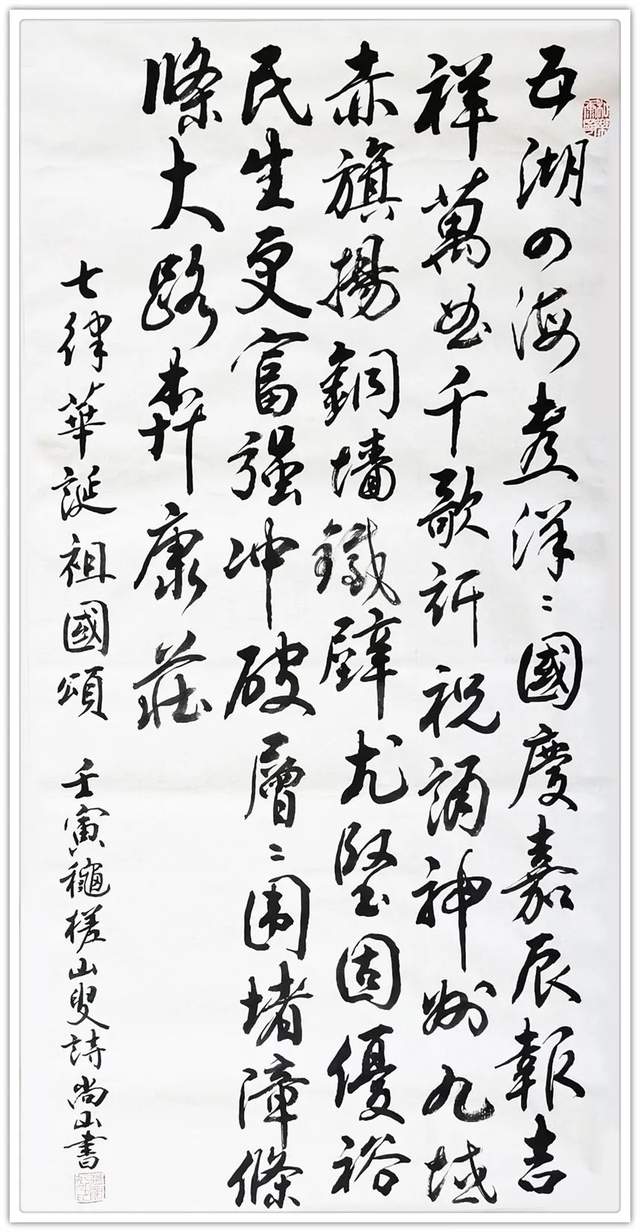 五湖四海喜洋〻國慶嘉辰報吉
祥萬曲千歌訴祝誦神州九域
赤旗揚銅墻鐵壁尤堅固優裕
民生更富强冲破層〻围堵障條
條大路奔康莊
七律華誕祖國頌 壬寅龝槎山叟詩尚山書